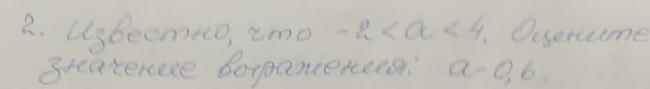 2. Известно, что -2 < a < 4. Оцените
значение выражения: a - 0,6.